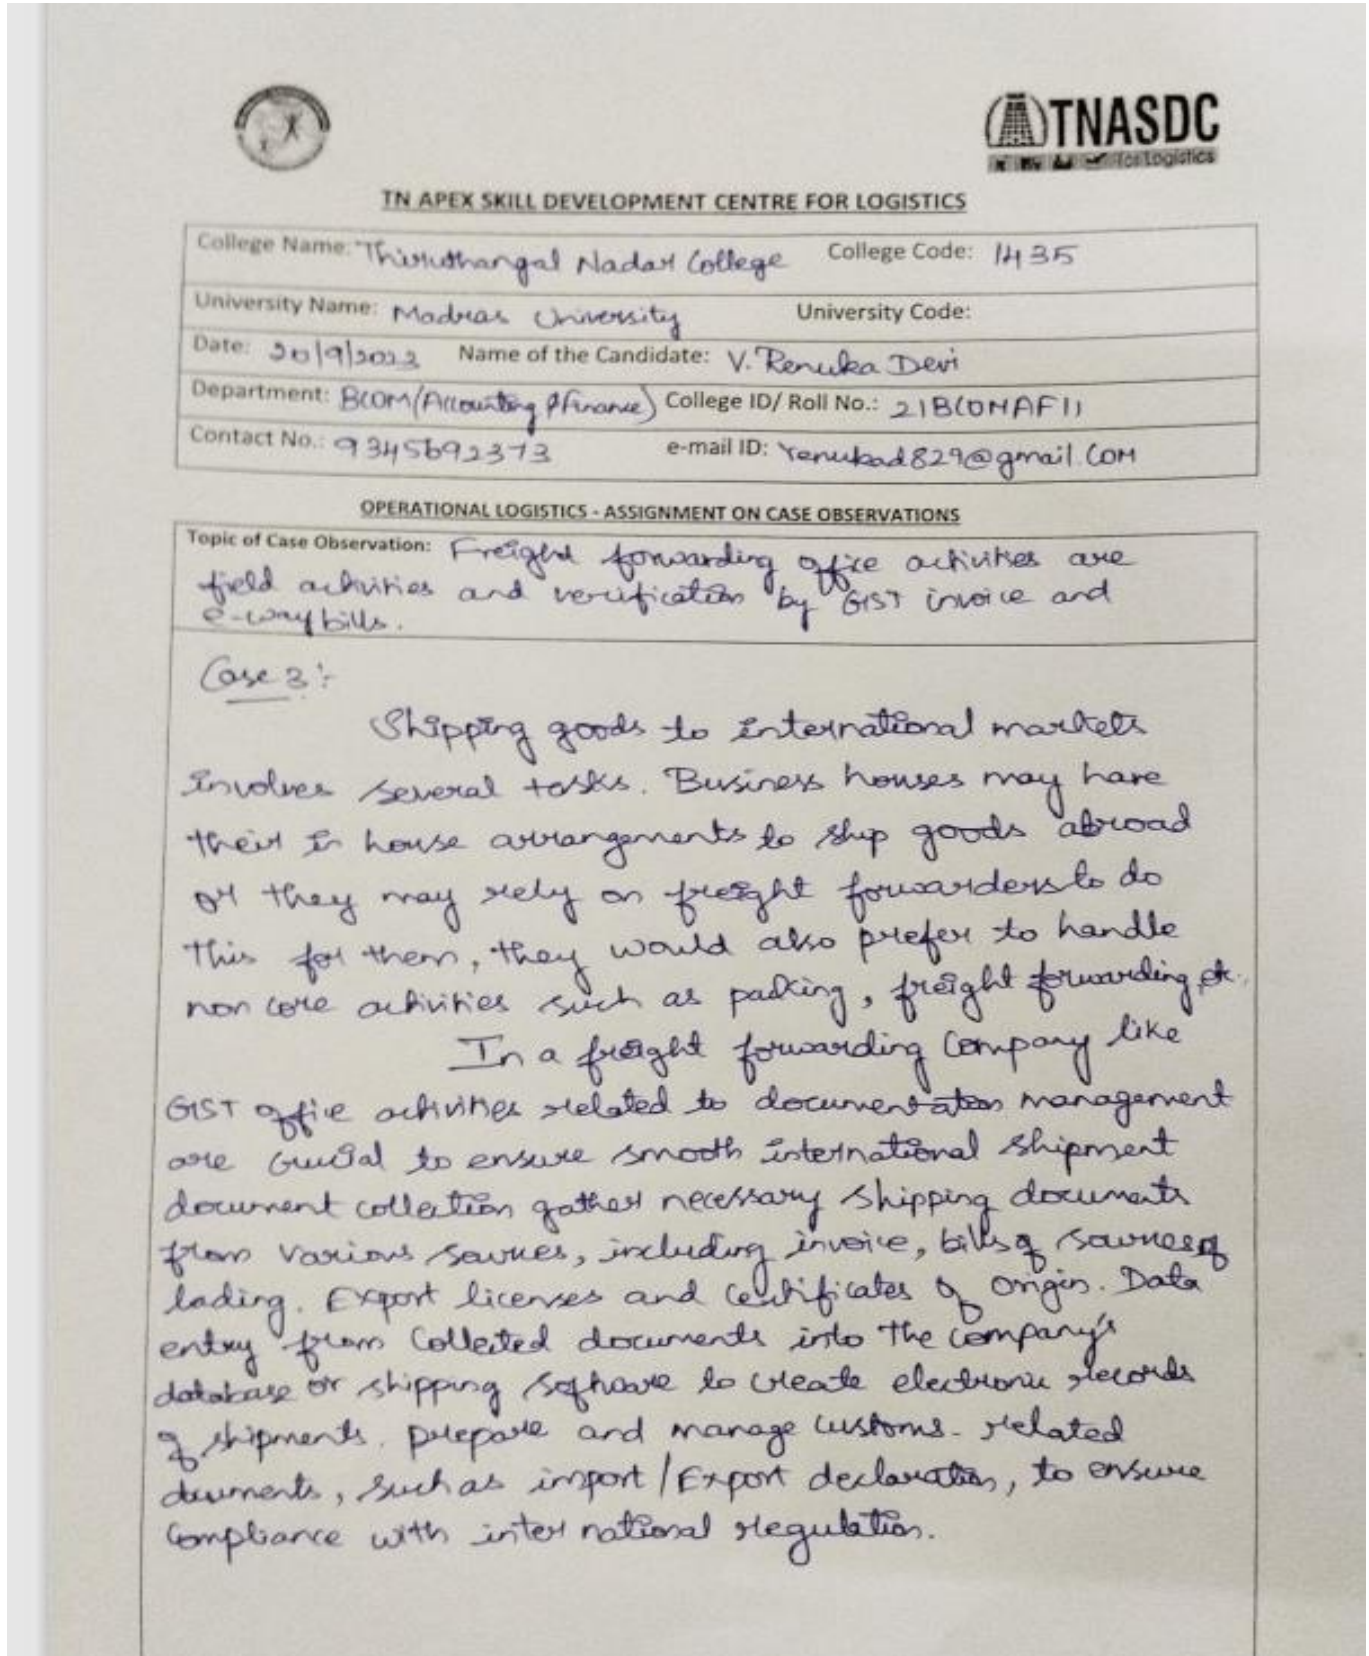 TNASDC
for Logistics
TN APEX SKILL DEVELOPMENT CENTRE FOR LOGISTICS
College Name: Thiruthangal Nadar College College Code: 1435
University Name: Madras University University Code:
Date: 20/9/2023 Name of the Candidate: V. Renuka Devi
Department: BCOM (Accounting & Finance) College ID/ Roll No.: 21BCOMAF11
Contact No.: 9345692373 e-mail ID: renukad829@gmail.com
OPERATIONAL LOGISTICS - ASSIGNMENT ON CASE OBSERVATIONS
Topic of Case Observation: Freight forwarding office activities are
field activities and verification by GIST invoice and
e-way bills.
Case 3:-
Shipping goods to international markets
involves several tasks. Business houses may have
their in house arrangements to ship goods abroad
or they may rely on freight forwarders to do
this for them, they would also prefer to handle
non core activities such as packing, freight forwarding, etc.
In a freight forwarding Company like
GIST office activities related to documentation management
are crucial to ensure smooth international shipment
document collection gather necessary shipping documents
from various sources, including invoice, bills of sources of
lading. Export licenses and certificates of origin. Data
entry from Collected documents into the company's
database or shipping software to create electronic records
of shipments. prepare and manage customs- related
duments, such as import / Export declaration, to ensure
compliance with inter national regulation.